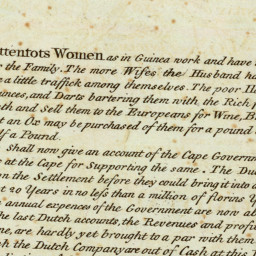 ttentots Women, as in Guinea work and have
the Family. The more Wifes the Husband ha
a little traffick among themselves. The poor
inces, and Darts bartering them with the Rich
th and Sell them to the Europeans for Wine, B
t an Ox may be purchased of them for a pound
lf a Pound.
Shall now give an account of the Cape Governm
e at the Cape for Supporting the same. The Du
on the Settlement before they could bring it into a
t 20 Years in no less than a million of florins
annual expences of the Government are now ab
he last Dutch accounts, the Revenues and profi
ne, are, hardly yet brought to a par with them
h the Dutch Company are out of Cash at this